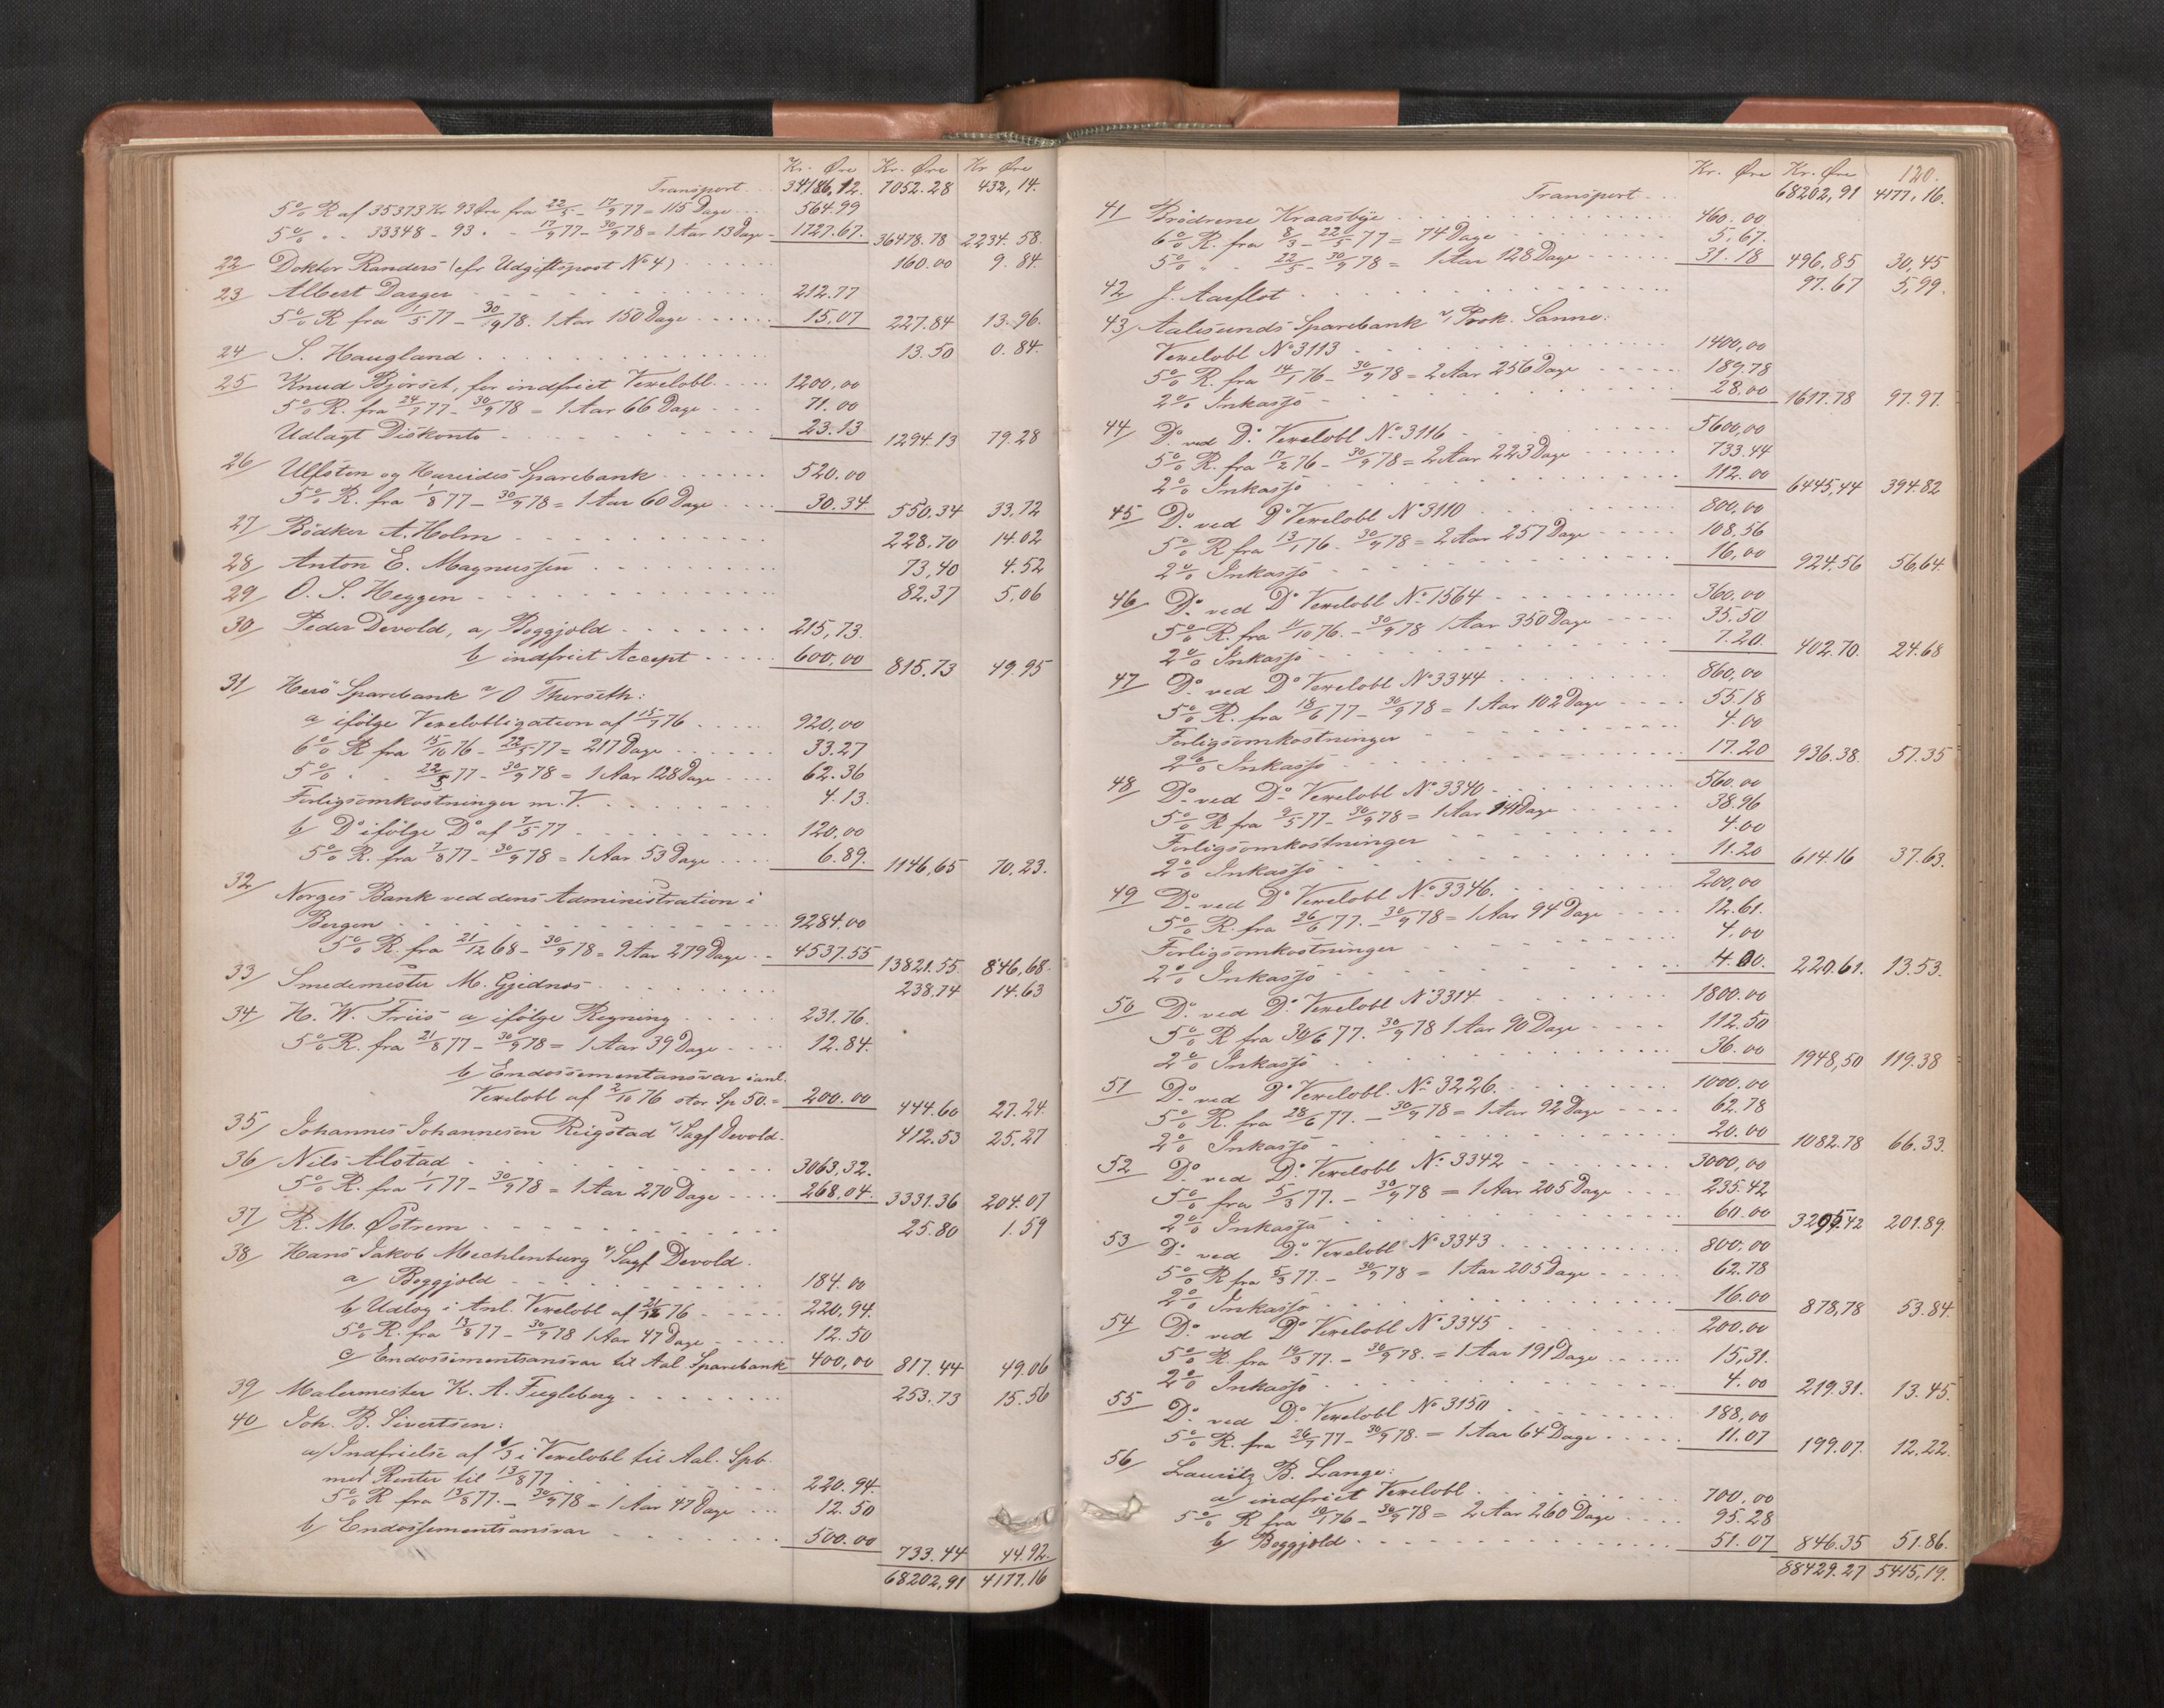 Kr. Øre Kr. Øre Kr Øre
Transport... 34186,12. 7052.28 432,14.
5% R af 35373 Kr 93 Øre fra 22/5 - 17/9 77 = 115 Dage... 564.99
5% . . 33348 - 93 . - 17/9 77 - 30/9 78 = 1 Aar 13 Dage - 1727.67. 36478.78 2234.58.
22/ Doktor Randers (cfr Udgiftspost No 4) 160.00 9.84.
23 Albert Darger 212.77
5% R fra 1/5 77 - 30/9 78. 1 Aar 150 Dage 15,07 227.84 13.96.
24 S. Haugland 13.50 0.84.
25 Knud Bjørset, for indfriet Vexelobl. 1200,00
5% R. fra 24/7 77 - 30/9 78 = 1 Aar 66 Dage 71.00
Udlagt Diskonto 23.13 1294.13 79.28
26/ Ulfsten og Hareides Sparebank 520.00
5% R. fra 1/8 77 - 30/9 78 = 1 Aar 60 Dage 30.34. 550,34 33,72
27/ Bödker A. Holm 228.70 14.02
28/ Anton E. Magnussen 73,40 4.52
29/ O. S. Heggen 82,37 5,06
30/ Peder Devold, a, Boggjæld 215,73.
b/ indfriet Accept 600,00 815,73 49.95
31/ Herö Sparebank v/ O Thorseth:
a ifölge Vexelobligation af 15/7 76 920,00
6% R fra 15/10 76 - 22/5 77 = 217 Dage 33.27
5% . . 22/5 77 - 30/9 78 = 1 Aar 128 Dage 62.36
Forligsomkostninger m. V. 4.13.
b/ Do ifölge Do af 7/5 77 120,00
5% R. fra 7/8 77 - 30/9 78 = 1 Aar 53 Dage 6.89. 1146,65 70,23.
32/ Norges Bank ved dens Administration i
Bergen 9284.00
5% R. fra 21/12 68 - 30/9 78 = 9 Aar 279 Dage 4537.55 13821.55. 846,68.
33/ Smedemester M. Gjidnes 238.74 14.63
34/ H. W. Friis a, ifölge Regning 231.76.
5% R. fra 21/8 77 - 30/9 78 = 1 Aar 39 Dage 12.84.
b/ Endossementansvar i anl.
Vexelobl af 2/10 76 stor Sp 50.= 200.00 444.60 27.24.
35/ Johannes Johannesen Reigstad v/ Sagf Devold. 412.53 25.27
36/ Nils Alstad 3063,32.
5% R. fra 1/1 77 - 30/9 78 = 1 Aar 270 Dage 268.04. 3331.36 204.07
37/ R. M. Östrem 25.80 1.59
38/ Hans Jakob Mechlenburg v/ Sagf Devold.
a/ Boggjæld 184.00
b/ Udlæg i Anl. Vexelobl af 21/12 76 220,94.
5% R. fra 13/8 77 - 30/9 78 1 Aar 47 Dage 12.50
c/ Endossementsansvar til Aal. Sparebank 400,00 817.44 49.06
39/ Malermester K. A. Fugleberg 253.73 15.56
40/ Joh. B. Sivertsen:
a/ Indfrielse af 1/3 i Vexelobl til Aal. Spb.
med Renter til 13/8 77 220.94.
5% R fra 13/8 77. - 30/9 78 = 1 Aar 47 Dage 12.50
b/ Endossementsansvar 500.00 733.44 44.92.
68202,91 4177.16
Kr. Øre Kr. Øre 120.
Transport... 68202,91 4177,16.
41 Brödrene Kraasbye 460.00
6% R. fra 8/3 - 22/5 77 = 74 Dage 5,67.
5% . . 22/5 - 30/9 78 = 1 Aar 128 Dage 31.18 496,85 30,45
42/ J. Aarflot 97.67 5,99.
43/ Aalesunds Sparebank v/ Prok. Sanne:
Vexelobl No 3113 1400,00
5% R. fra 14/1 76 - 30/9 78 = 2 Aar 256 Dage 189.78
2% Inkasso 28,00 1617.78 97.97.
44/ Do ved Do Vexelobl No 3116 5600,00
5% R. fra 17/2 76 - 30/9 78 = 2 Aar 223 Dage 733.44
2% Inkasso 112.00 6445,44 394.82
45 Do. ved Do Vexelobl No 3110 800,00
5% R fra 13/1 76 - 30/9 78 = 2 Aar 257 Dage 108.56
2% Inkasso 16,00 924.56 56,64.
46/ Do. ved Do Vexelobl No 1564 360,00
5% R. fra 11/10 76. - 30/9 78 1 Aar 350 Dage 35.50
2% Inkasso 7.20. 402.70. 24.68
47/ Do. ved Do Vexelobl No 3344 860,00
5% R. fra 18/6 77 - 30/9 78 = 1 Aar 102 Dage 55.18
Forligsomkostninger 4.00
2% Inkasso 17.20 936.38. 57.35
48/ Do. ved Do. Vexelobl No 3340 560.00
5% R fra 9/5 77 - 30/9 78 = 1 Aar 141 Dage 38.96
Forligsomkostninger 4.00
2% Inkasso 11.20 614.16 37.63.
49 Do. ved Do Vexelobl No 3346. 200,00
5% R. fra 26/6 77. - 30/9 78 = 1 Aar 94 Dage 12.61.
Forligsomkostninger 4.00
2% Inkasso 4.00. 220.61. 13.53.
50/ Do. ved Do. Vexelobl No 3314 1800.00
5% R fra 30/6 77. 30/9 78 1 Aar 90 Dage 112.50
2% Inkasso 36.00 1948,50 119.38
51 Do. ved Do Vexelobl. No 3226. 1000.00
5% R. fra 28/6 77. - 30/9 78 = 1 Aar 92 Dage 62.78
2% Inkasso 20.00 1082.78 66.33.
52 Do. ved Do. Vexelobl No. 3342 3000,00
5% fra 5/3 77. - 30/9 78 = 1 Aar 205 Dage 235.42
2% Inkasso 60.00 3295.42 201.89.
53/ Do. ved Do. Vexelobl No 3343 800.00
5% R fra 5/3 77. - 30/9 78 = 1 Aar 205 Dage 62.78
2% Inkasso 16.00 878,78 53.84.
54/ Do. ved Do Vexelobl No 3345 200.00
5% R. fra 19/3 77. - 30/9 78. = 1 Aar 191 Dage 15,31.
2% Inkasso 4.00 219.31. 13.45.
55 Do. ved Do. Vexelobl No 3150 188,00
5% R. fra 26/7 77 - 30/9 78. = 1 Aar 64 Dage 11.07 199.07. 12.22.
56/ Lauritz B. Lange:
a/ indfriet Vexelobl 700.00
5% R fra 10/1 76 - 30/9 78 = 2 Aar 260 Dage 95.28
b/ Boggjæld 51.07 846.35 51.86.
88429.27 5415,19.